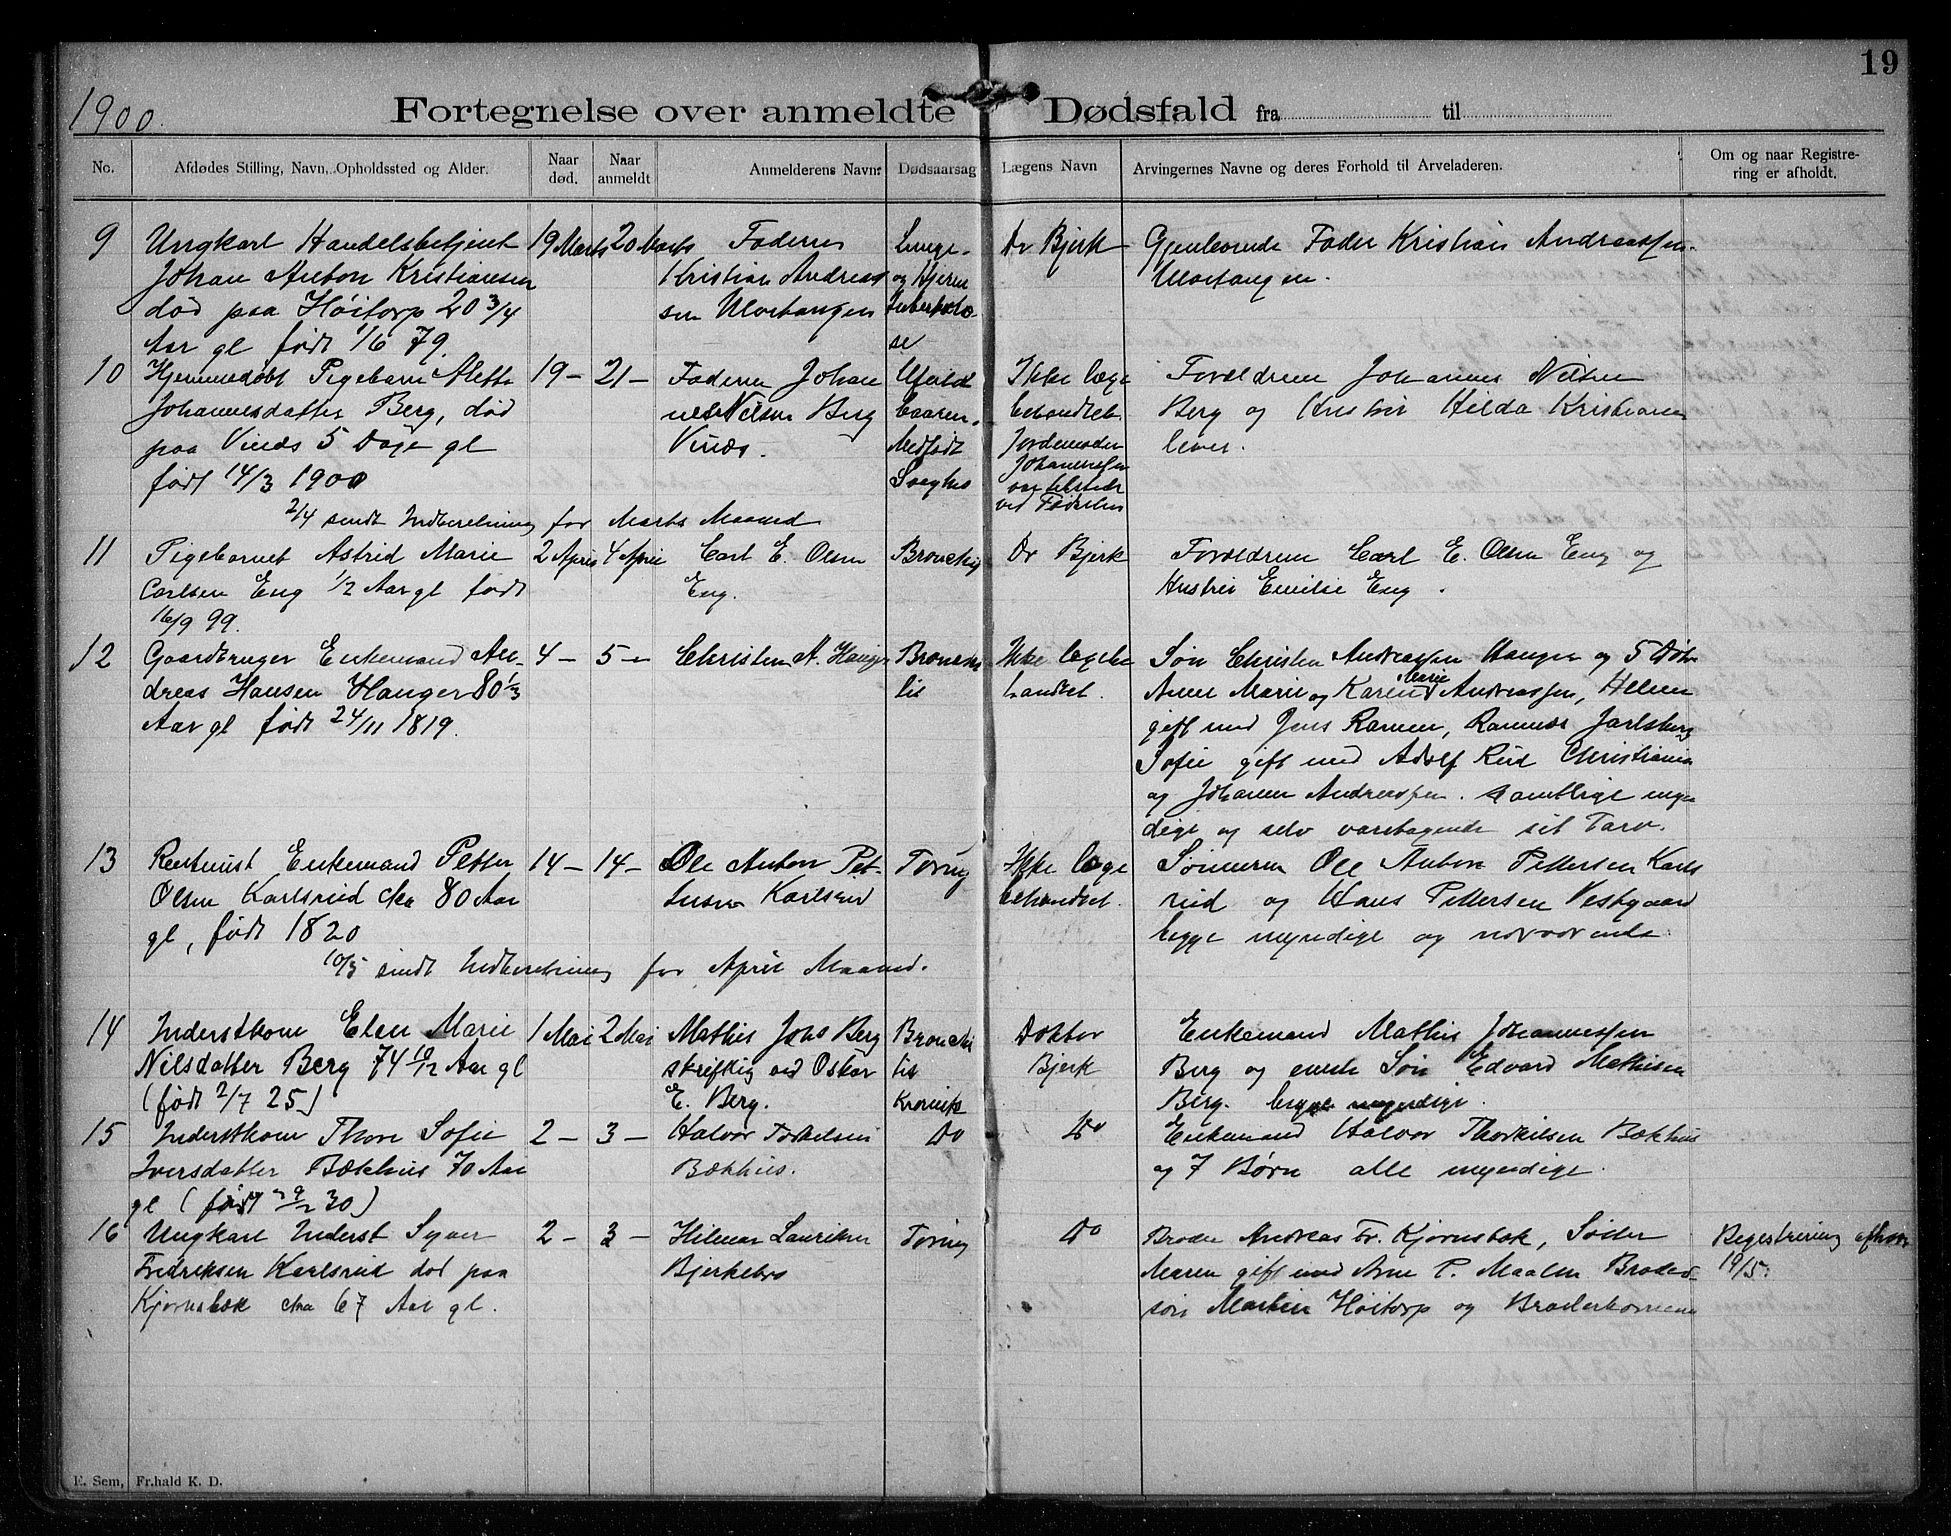 19
1900.
Fortegnelse over anmeldte Dødsfald fra til
No. Afdødes Stilling, Navn, Opholdssted og Alder. Naar død. Naar anmeldt Anmelderens Navn. Dødsaarsag Lægens Navn Arvingernes Navne og deres Forhold til Arveladeren. Om og naar Registrering er afholdt.
9 Ungkarl Handelsbetjent 19 Marts 20 Marts Faderen Lunge- Dr Bjerk Gjenlevende Fader Kristian Andreassen
Johan Anton Kristiansen Kristian Andreas og Hjerne
død paa Høitorp 20 3/4 sen
Aar gl født 1/6 79. se
10 Hjemmedøbt Pigebarn 19 – 21 – Faderen Johan Ikke læge Forældrene Johannes Nilsen
Johannesdatter Berg, død nes Nilsen Berg behandlet Berg og Hustru Hilda Kristiane
paa Vinds 5 Dage gl Vinds. Medfødt Jordemoder lever.
født 14/3 1900 Svaghed Johannesen
ved Fødselen
2/4 sendt Indberetning for Marts Maaned
11 Pigebarnet Astrid Marie 2 April 4 April Carl E. Olsen Dr Bjerk Forældrene Carl E. Olsen Eng og
Carlsen Eng 1/2 Aar gl født Eng. Hustru Emilie Eng.
16/9 99.
12 Gaardbruger Enkemand An- 4 – 5 – Christen A. Hanger Bronchi Ikke lægebe Søn Christen Andreassen Hanger og 5 Døtre
dreas Hansen Hanger 80 1/3 tis handlet. Anne Marie og Karen Marie Andreassen, Helene
Aar gl født 24/11 1819. gift med Jens Ramen, Jarlsberg
Sofie gift med Adolf Rud Christiania
og Johanne Andreassen. samtlige myn
dige og selv varetagende sit Tarv.
13 Enkemand Petter 14 – 14 – Ole Anton Pet- Tæring Ikke læge Sønnerne Ole Anton Pettersen Karls
Olsen Karlsrud cka 80 Aar tersen Karlsrud behandlet. rud og Hans Pettersen Vestgaard
gl, født 1820 begge myndige og nærværende
10/5 sendt Indberetning for April Maaned.
14 Inderstkone Elen Marie 1 Mai 2 Mai Mathis Johs Berg Bronchi Doktor Enkemand Mathis Johannessen
Nilsdatter Berg 74 10/12 Aar gl skriftlig ved Oskar tis Bjerk Berg og eneste Søn Edvard Mathisen
(født 2/7 25) E. Berg. Kronisk Berg. begge myndige.
15 Inderstkone Thore Sofie 2 – 3 – Halvor Torkelsen Do Do Enkemand Halvor Thorkilsen Bækhus
Iversdatter Bækhus 70 Aar Bækhus. og 7 Børn alle myndige.
gl (født 30)
16 Ungkarl Inderst Syver 2 – 3 – Hilmar Lauritsen Tæring Do Broder Andreas Fr. Kjørnsbæk, Søster Registrering afhol
Fredriksen Karlsrud død paa Bjerkebæk Maren gift med Arne P. Maalen Broder- 19/5.
Kjørnsbæk cka 67 Aar gl. søn Martin Høitorp og Broderbørnene
E. Sem, Fr.hald K. D.